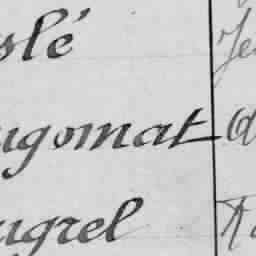 slé Je
ugomat
ugrel